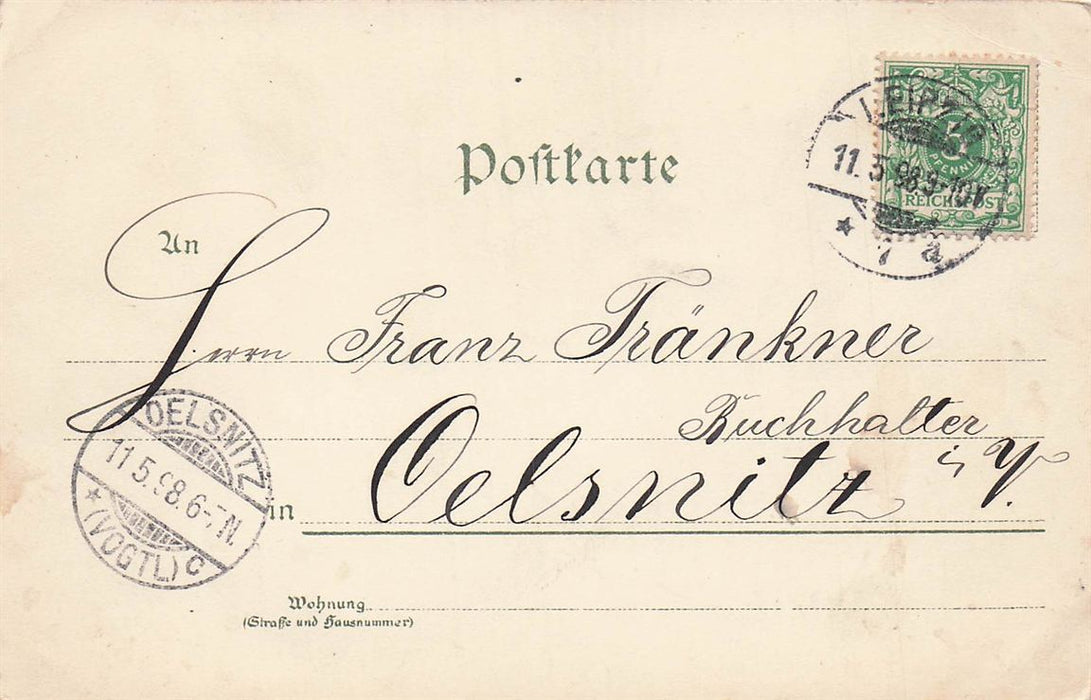 Postkarte
LEIPZIG
11.5.98.9-10V.
* 7 a *
5
PFENNIG
REICHSPOST
An
Herrn Franz Tränkner
Buchhalter
in Oelsnitz i/V.
OELSNITZ
11.5.98.6-7N.
* (VOGTL) c
Wohnung
(Straße und Hausnummer)